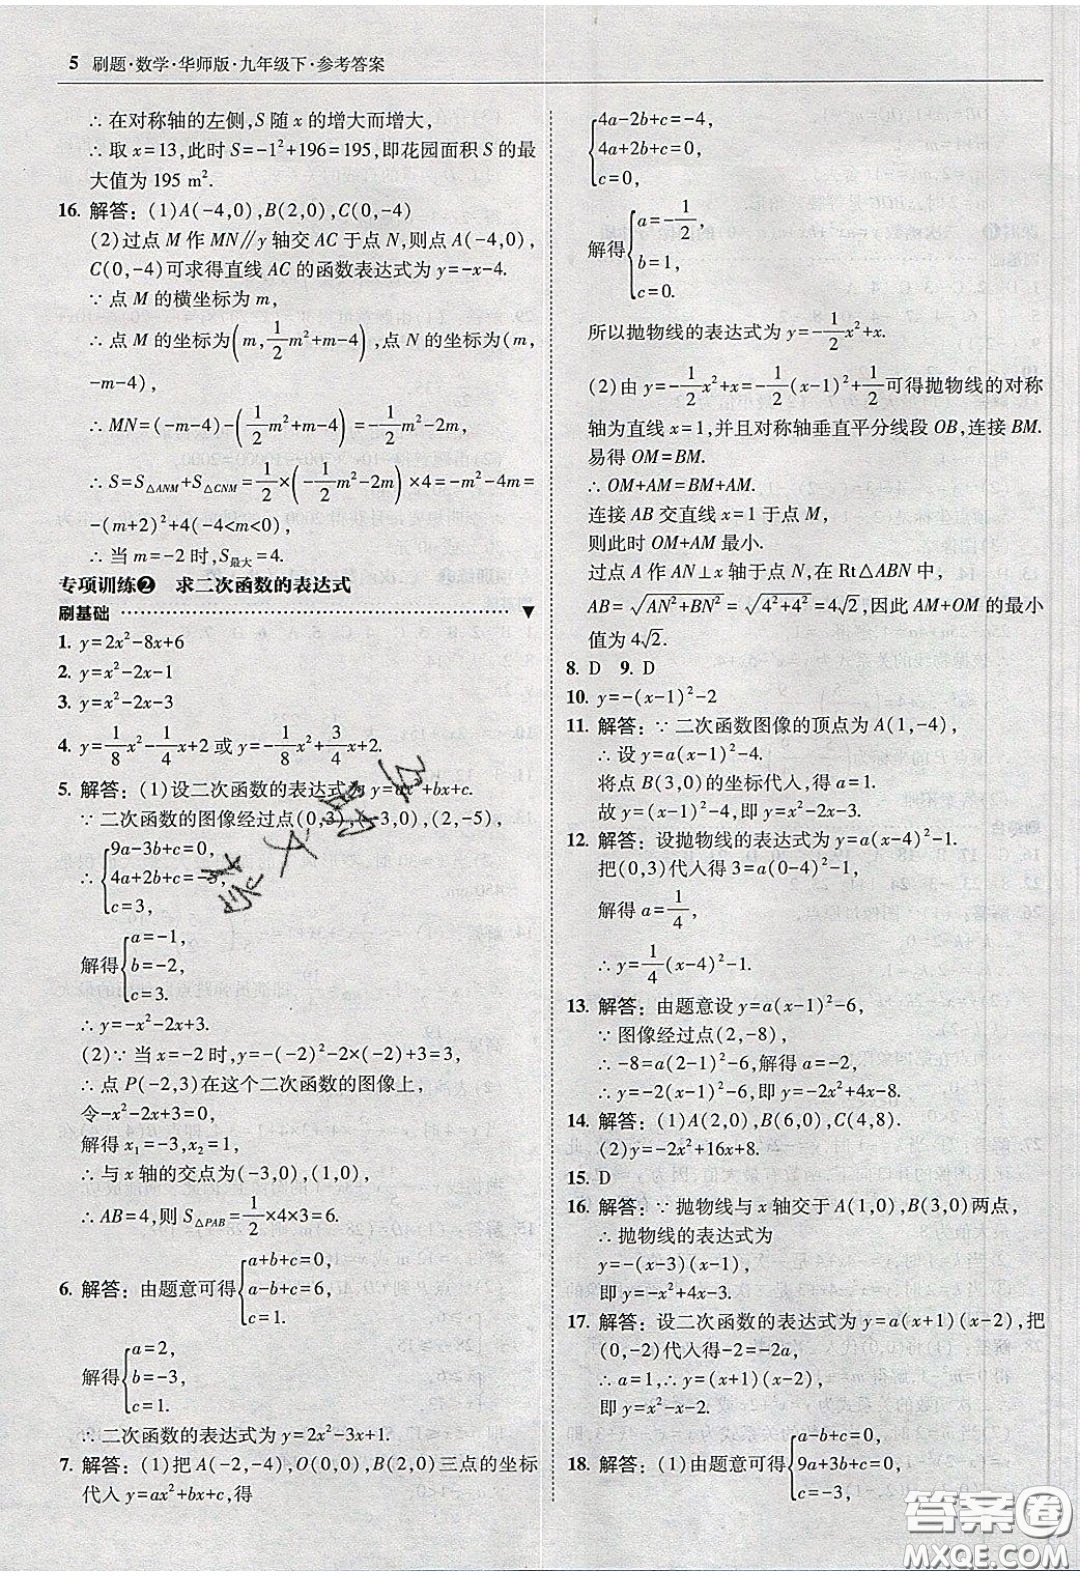 5 刷题·数学·华师版·九年级下·参考答案
∴ 在对称轴的左侧,S 随 x 的增大而增大,
∴ 取 x=13,此时 S=-1²+196=195,即花园面积 S 的最
大值为 195 m².
16. 解答：(1)A(-4,0),B(2,0),C(0,-4)
(2)过点 M 作 MN∥y 轴交 AC 于点 N,则点 A(-4,0),
C(0,-4)可求得直线 AC 的函数表达式为 y=-x-4.
∵ 点 M 的横坐标为 m,
∴ 点 M 的坐标为(m,1/2m²+m-4),点 N 的坐标为(m,
-m-4),
∴ MN=(-m-4)-(1/2m²+m-4)=-1/2m²-2m,
∴ S=S△ANM+S△CNM=1/2×(-1/2m²-2m)×4=-m²-4m=
-(m+2)²+4(-4<m<0),
∴ 当 m=-2 时,S最大=4.
专项训练❷ 求二次函数的表达式
刷基础
1. y=2x²-8x+6
2. y=x²-2x-1
3. y=x²-2x-3
4. y=1/8x²-1/4x+2 或 y=-1/8x²+3/4x+2.
5. 解答：(1)设二次函数的表达式为 y=ax²+bx+c.
∵ 二次函数的图像经过点(0,3),(-3,0),(2,-5),
∴ {9a-3b+c=0,
4a+2b+c=-5,
c=3,
解得{a=-1,
b=-2,
c=3.
∴ y=-x²-2x+3.
(2)∵ 当 x=-2 时,y=-(-2)²-2×(-2)+3=3,
∴ 点 P(-2,3)在这个二次函数的图像上,
令-x²-2x+3=0,
解得 x₁=-3,x₂=1,
∴ 与 x 轴的交点为(-3,0),(1,0),
∴ AB=4,则 S△PAB=1/2×4×3=6.
6. 解答：由题意可得{a+b+c=0,
a-b+c=6,
c=1,
解得{a=2,
b=-3,
c=1.
∴ 二次函数的表达式为 y=2x²-3x+1.
7. 解答：(1)把 A(-2,-4),O(0,0),B(2,0)三点的坐标
代入 y=ax²+bx+c,得
{4a-2b+c=-4,
4a+2b+c=0,
c=0,
解得{a=-1/2,
b=1,
c=0.
所以抛物线的表达式为 y=-1/2x²+x.
(2)由 y=-1/2x²+x=-1/2(x-1)²+1/2可得抛物线的对称
轴为直线 x=1,并且对称轴垂直平分线段 OB,连接 BM.
易得 OM=BM.
∴ OM+AM=BM+AM.
连接 AB 交直线 x=1 于点 M,
则此时 OM+AM 最小.
过点 A 作 AN⊥x 轴于点 N,在 Rt△ABN 中,
AB=√(AN²+BN²)=√(4²+4²)=4√2,因此 AM+OM 的最小
值为 4√2.
8. D 9. D
10. y=-(x-1)²-2
11. 解答：∵ 二次函数图像的顶点为 A(1,-4),
∴ 设 y=a(x-1)²-4.
将点 B(3,0)的坐标代入,得 a=1.
故 y=(x-1)²-4,即 y=x²-2x-3.
12. 解答：设抛物线的表达式为 y=a(x-4)²-1.
把(0,3)代入得 3=a(0-4)²-1.
解得 a=1/4,
∴ y=1/4(x-4)²-1.
13. 解答：由题意设 y=a(x-1)²-6,
∵ 图像经过点(2,-8),
∴ -8=a(2-1)²-6,解得 a=-2,
∴ y=-2(x-1)²-6,即 y=-2x²+4x-8.
14. 解答：(1)A(2,0),B(6,0),C(4,8).
(2)y=-2x²+16x+8.
15. D
16. 解答：∵ 抛物线与 x 轴交于 A(1,0),B(3,0)两点,
∴ 抛物线的表达式为
y=-(x-3)(x-1),
即 y=-x²+4x-3.
17. 解答：设二次函数的表达式为 y=a(x+1)(x-2),把
(0,-2)代入得-2=-2a,
∴ a=1,∴ y=(x+1)(x-2),
即 y=x²-x-2.
18. 解答：(1)由题意可得{a-b+c=0,
9a+3b+c=0,
c=-3,
答案圈
MXQE.COM